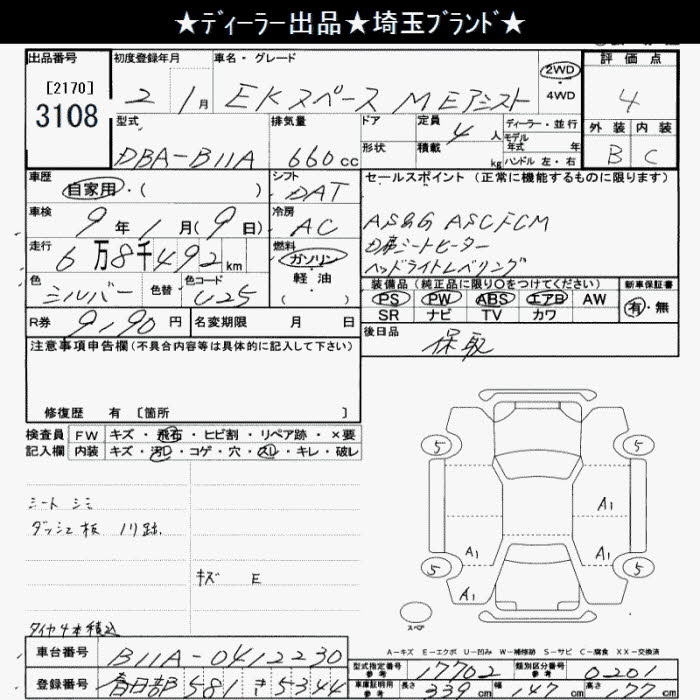 ★ディーラー出品★埼玉ブランド★
出品番号 初度登録年月 車名・グレード 評価点
[2170]
3108
2 1月 EKスペース MEアシスト 2WD 4WD 4
型式 排気量 ドア 定員 4人 ディーラー・並行 外装 内装
DBA-B11A 660cc 形状 積載 kg モデル年式 年 ハンドル 左・右 B C
車歴 シフト セールスポイント(正常に機能するものに限ります)
自家用・( ) DAT
車検 冷房
9年1月(9日) AC AS&G ASC FCM
走行 燃料 シートヒーター
6万8千492km ガソリン ヘッドライトレベリング
色 色替 色コード 軽油 装備品(純正品に限り○をつけてください) 新車保証書
シルバー U25 ( ) PS PW ABS エアB AW 有・無
SR ナビ TV カワ
R券 9,190円 名変期限 月 日 後日品
保取
注意事項申告欄(不具合内容等は具体的に記入して下さい)
修復歴 有 [箇所 ]
検査員 FW キズ・飛石・ヒビ割・リペア跡・×要
記入欄 内装 キズ・汚レ・コゲ・穴・スレ・キレ・破レ
5 5
シート シミ
A1
ダッシュ板 ノリ跡
A1 A1
5 5
キズ E
A1
スペア
タイヤ4本積込
A=キズ E=エクボ U=凹み W=補修跡 S=サビ C=腐食 XX=交換済
車台番号 B11A-0412230
型式指定番号 参考 17702 類別区分番号 参考 0201
登録番号 春日部 581 き 5344
車庫証明用 参考 長さ 339cm 幅 147cm 高さ 177cm